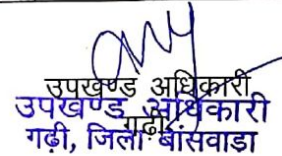 उपखण्ड अधिकारी
उपखण्ड अधिकारी
गढ़ी
गढ़ी, जिला बांसवाडा